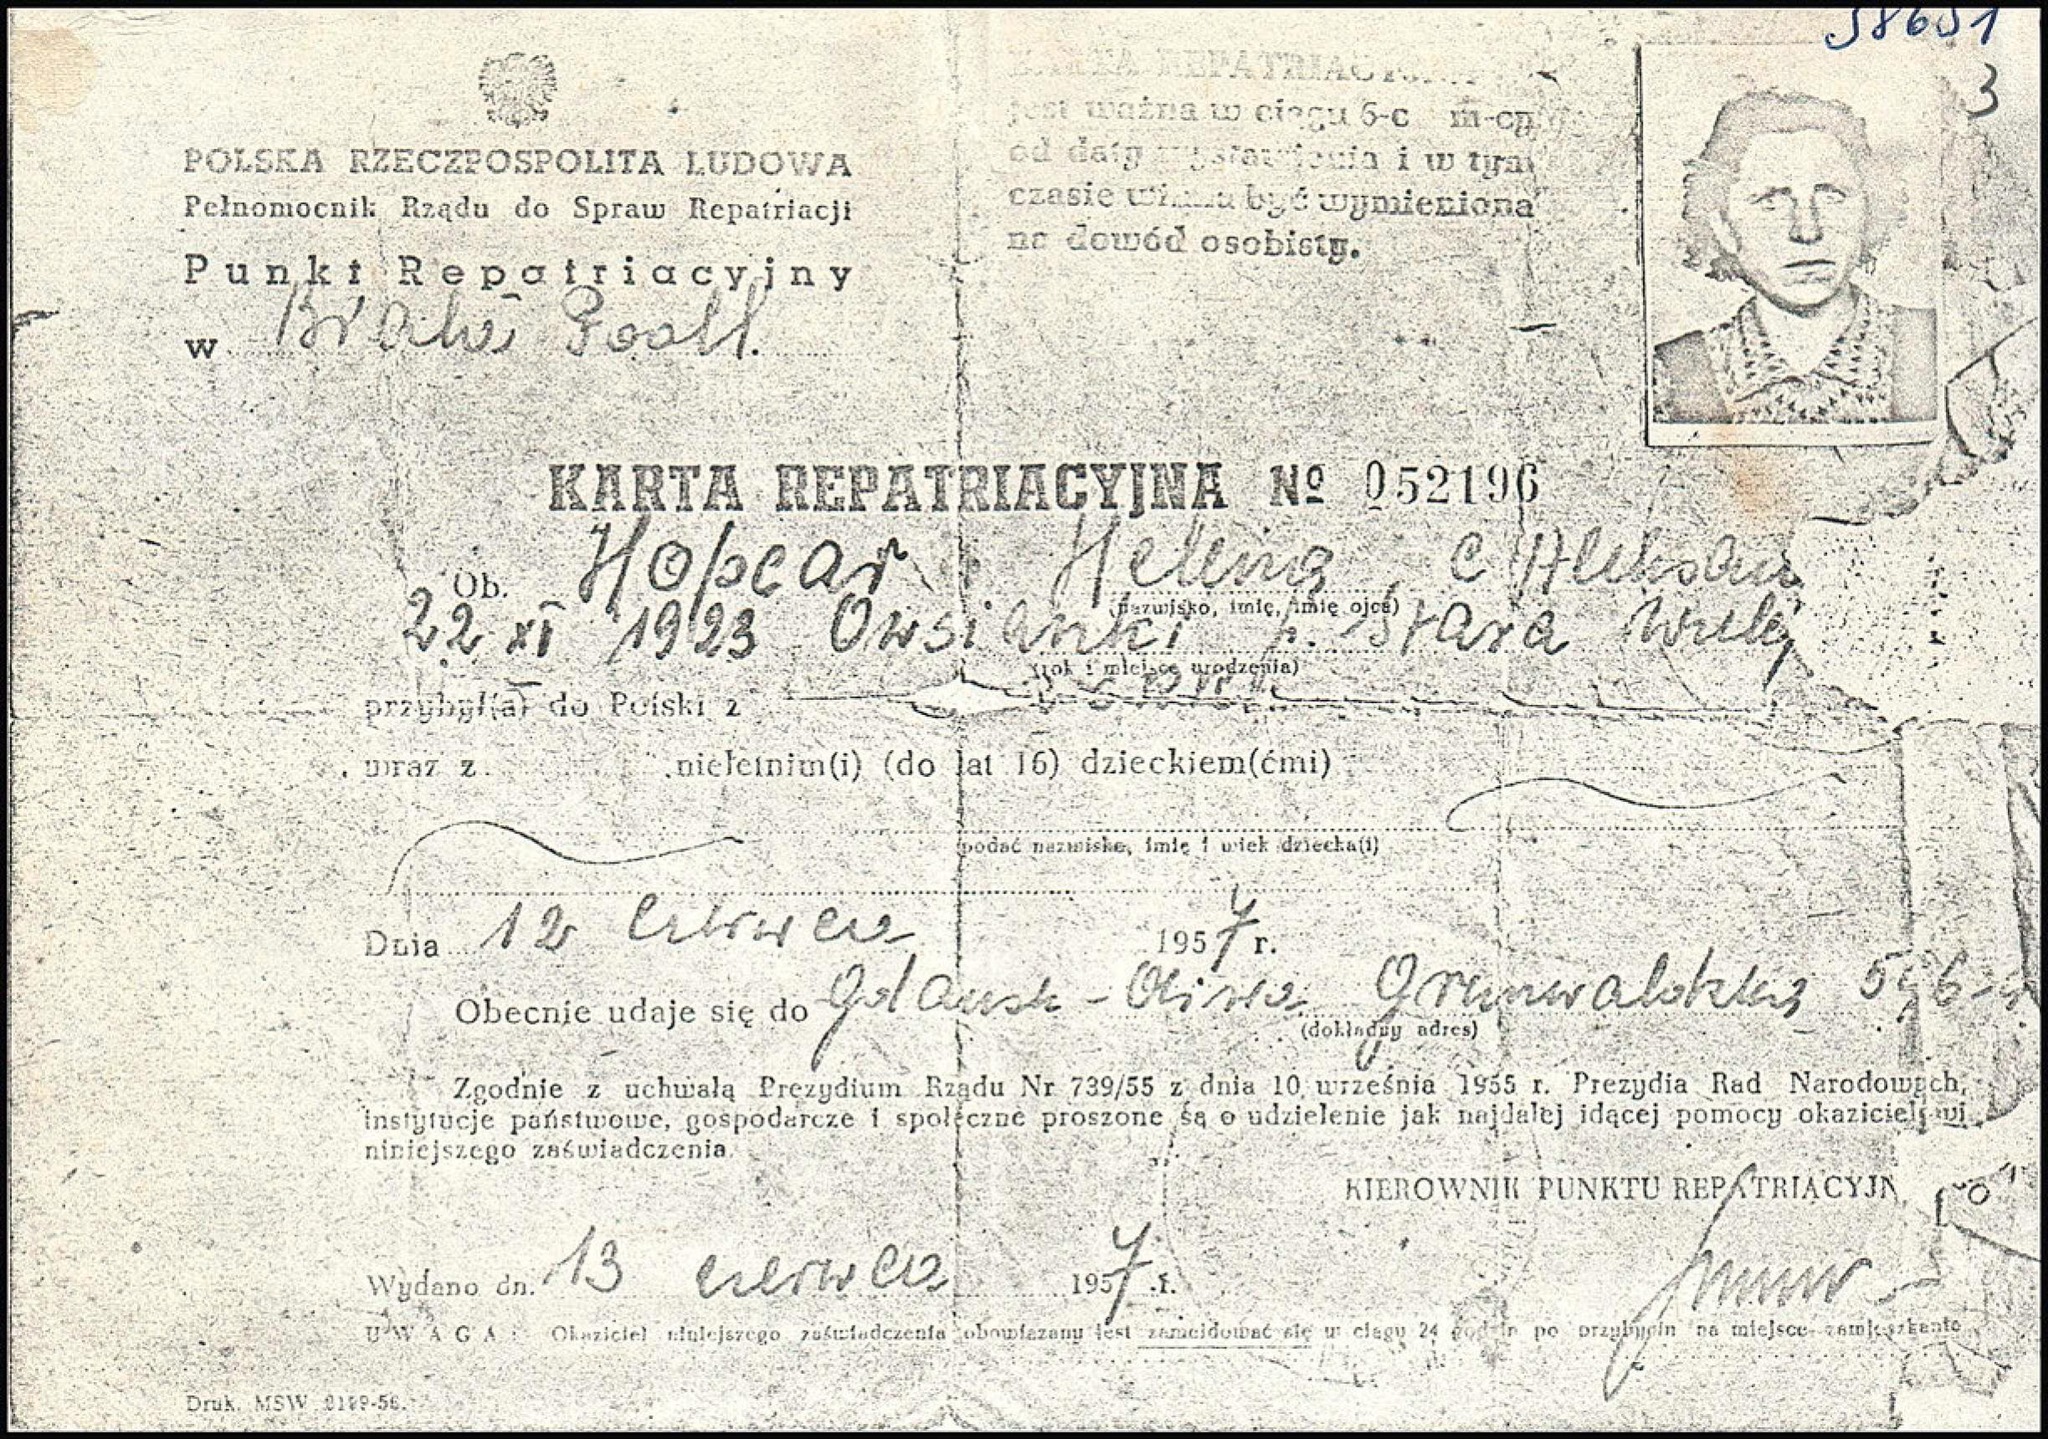 58651
3
POLSKA RZECZPOSPOLITA LUDOWA
Pełnomocnik Rządu do Spraw Repatriacji
Punkt Repatriacyjny
w Białej Podl.
KARTA REPATRIACYJNA
jest ważna w ciągu 6-c m-cy
od daty wystawienia i w tym
czasie winna być wymieniona
na dowód osobisty.
KARTA REPATRIACYJNA Nº 052196
Ob. Hopcar Helena c
(nazwisko, imię, imię ojca)
22 XI 1923 Owsianki p. Stara
(rok i miejsce urodzenia)
przybył(a) do Polski z
wraz z nieletnim(i) (do lat 16) dzieckiem(ćmi)
(podać nazwisko, imię i wiek dziecka(i)
Dnia 12 czerwca 1957 r.
Obecnie udaje się do Gdańsk - Oliwa Grunwaldzka
(dokładny adres)
Zgodnie z uchwałą Prezydium Rządu Nr 739/55 z dnia 10 września 1955 r. Prezydia Rad Narodowych,
instytucje państwowe, gospodarcze i społeczne proszone są o udzielenie jak najdalej idącej pomocy okazicielowi
niniejszego zaświadczenia.
KIEROWNIK PUNKTU REPATRIACYJN
Wydano dn. 13 czerwca 1957 r.
UWAGA: Okaziciel niniejszego zaświadczenia obowiązany jest zameldować się w ciągu 24 godzin po przybyciu na miejsce zamieszkania
Druk. MSW 2199-56.